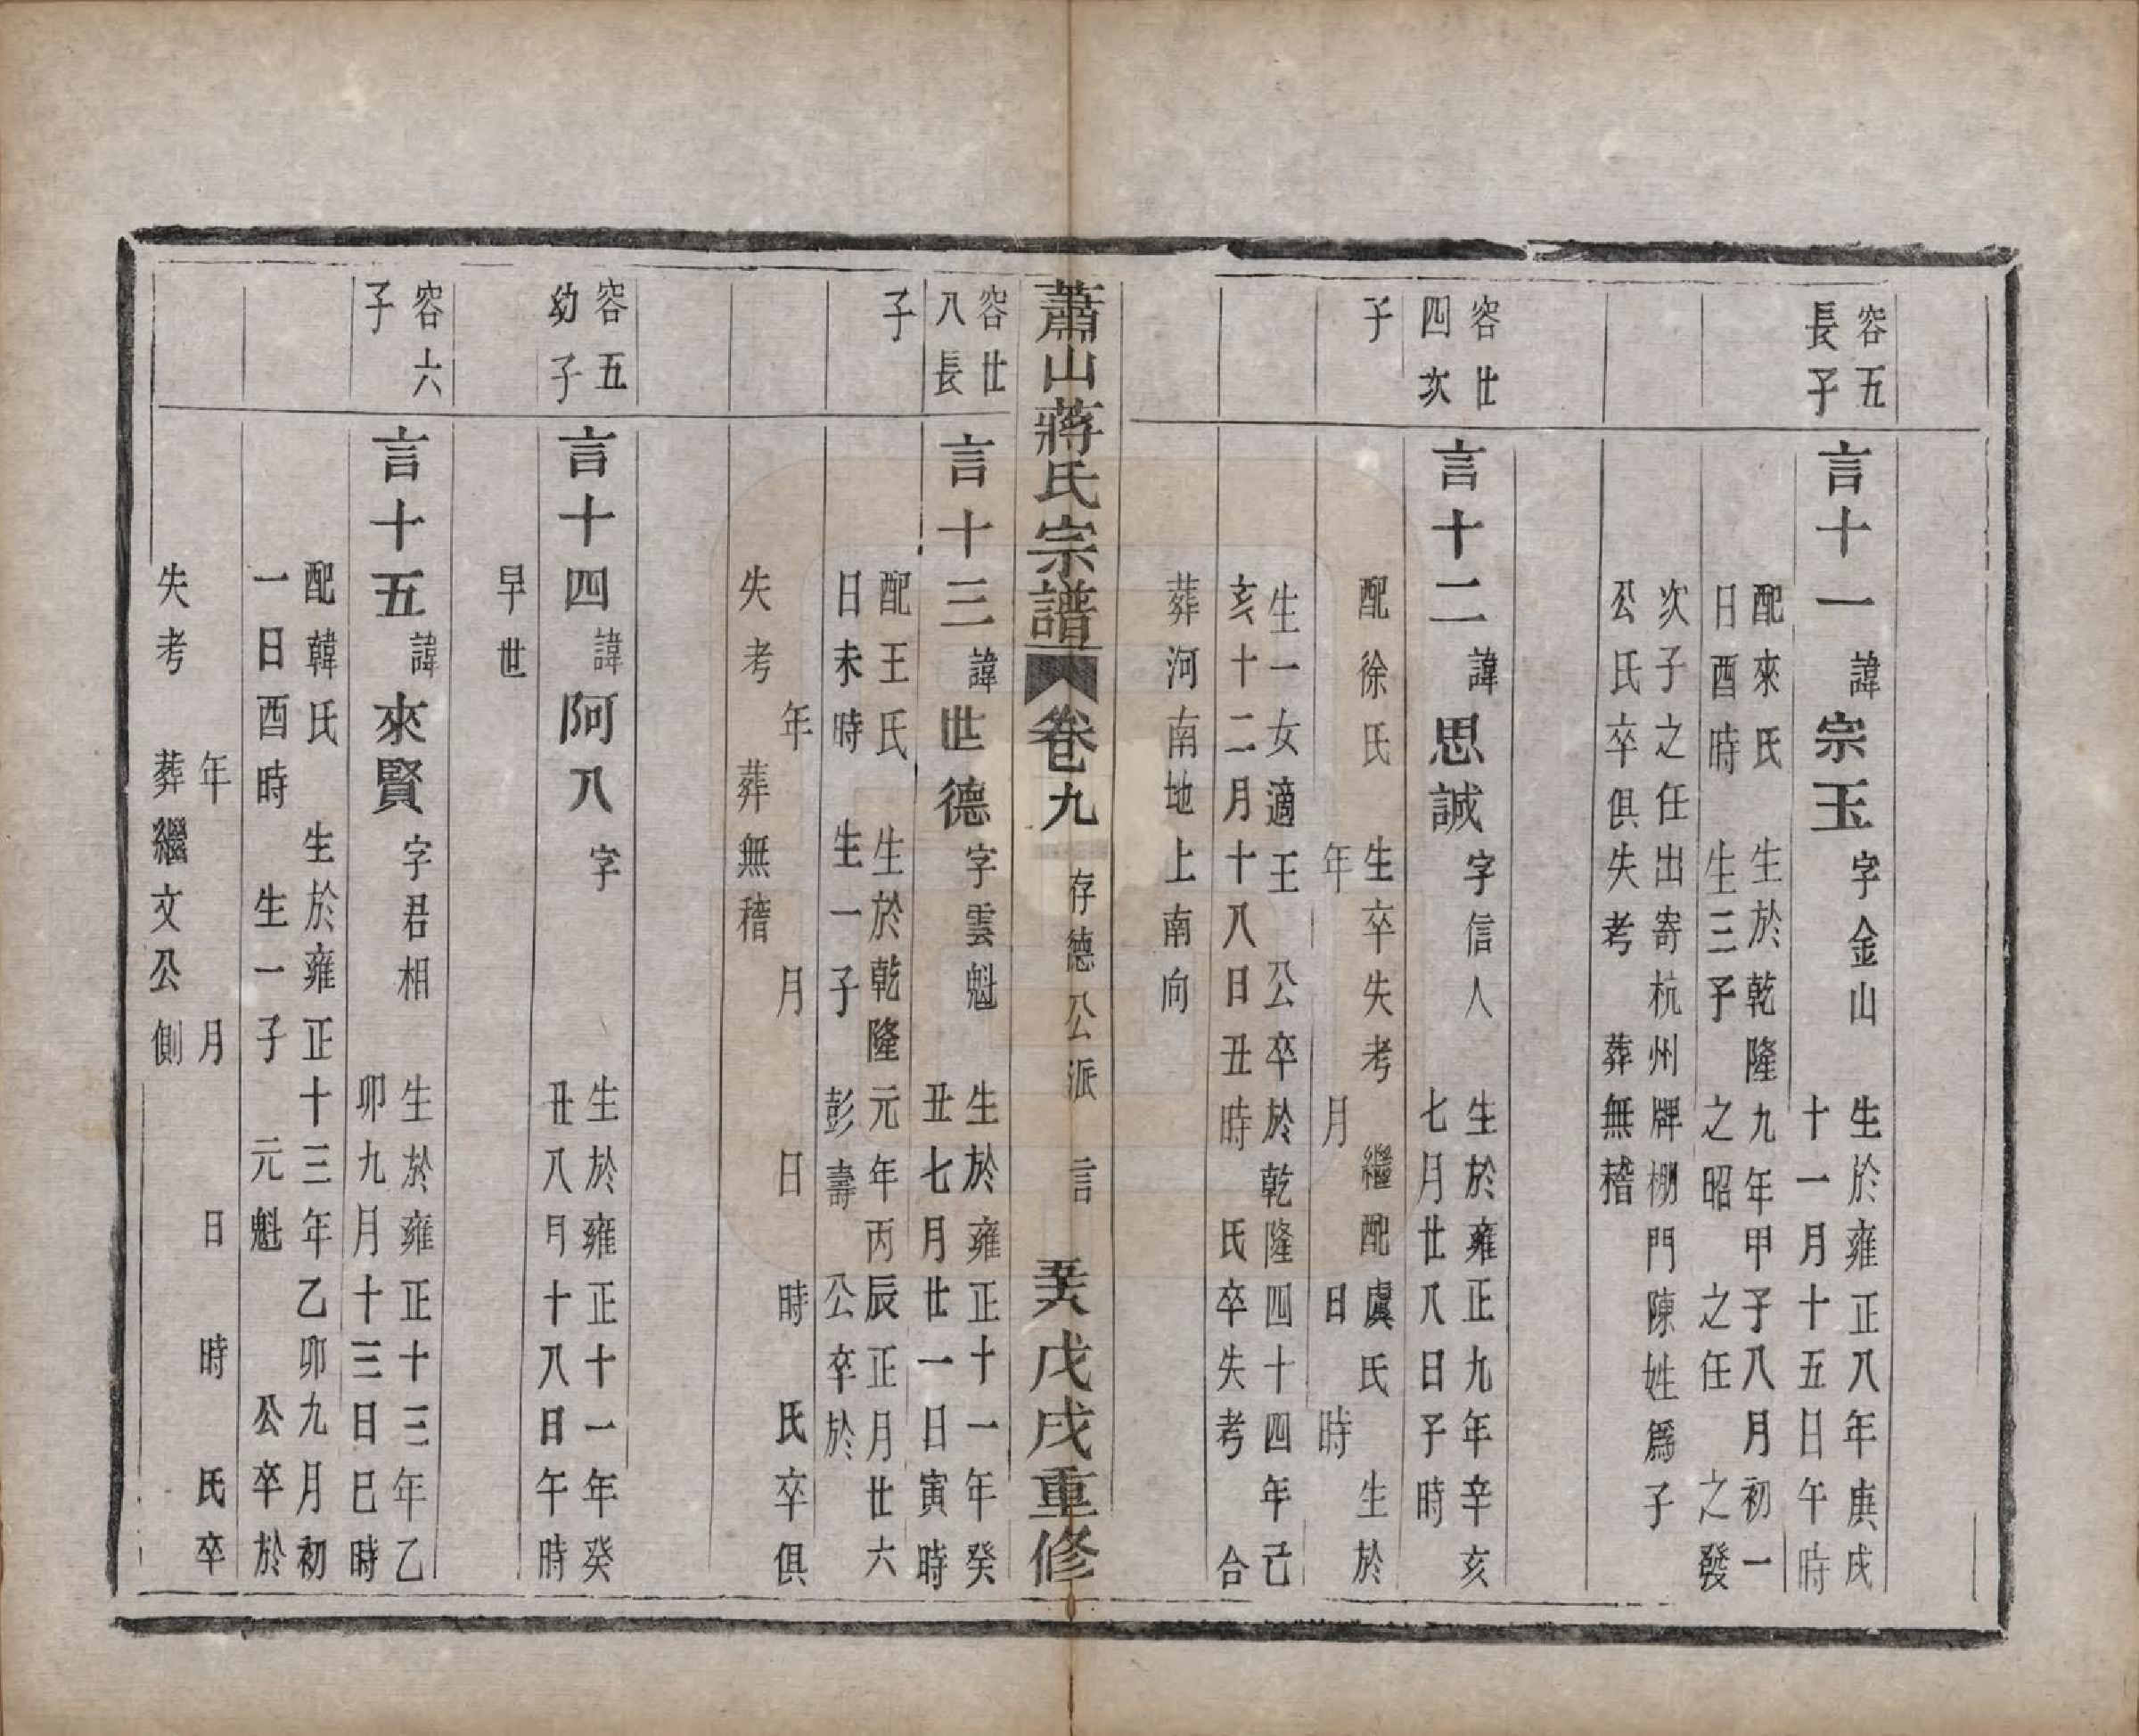 容五
長子
言十一
諱宗玉
字金山
生於雍正八年庚戌
十一月十五日午時
配來氏 生於乾隆九年甲子八月初一
日酉時 生三子 之昭 之任 之發
次子之任出寄杭州牌棚門陳姓爲子
公氏卒俱失考 葬無稽
容世
四次
子
言十二
諱思誠
字信人
生於雍正九年辛亥
七月廿八日子時
配徐氏 生卒失考 繼配虞氏 生於
年 月 日 時
生一女適王 公卒於乾隆四十四年己
亥十二月十八日丑時 氏卒失考 合
葬河南地上南向
蕭山蔣氏宗譜 卷九 存德公派 言 戊戌重修
容世
八長
子
言十三
諱世德
字雲魁
生於雍正十一年癸
丑七月廿一日寅時
配王氏 生於乾隆元年丙辰正月廿六
日未時 生一子 彭壽 公卒於
年 月 日 時 氏卒俱
失考 葬無稽
容五
幼子
言十四
諱阿八
字
生於雍正十一年癸
丑八月十八日午時
早世
容六
子
言十五
諱來賢
字君相
生於雍正十三年乙
卯九月十三日巳時
配韓氏 生於雍正十三年乙卯九月初
一日酉時 生一子 元魁 公卒於
年 月 日 時 氏卒
失考 葬繼文公側